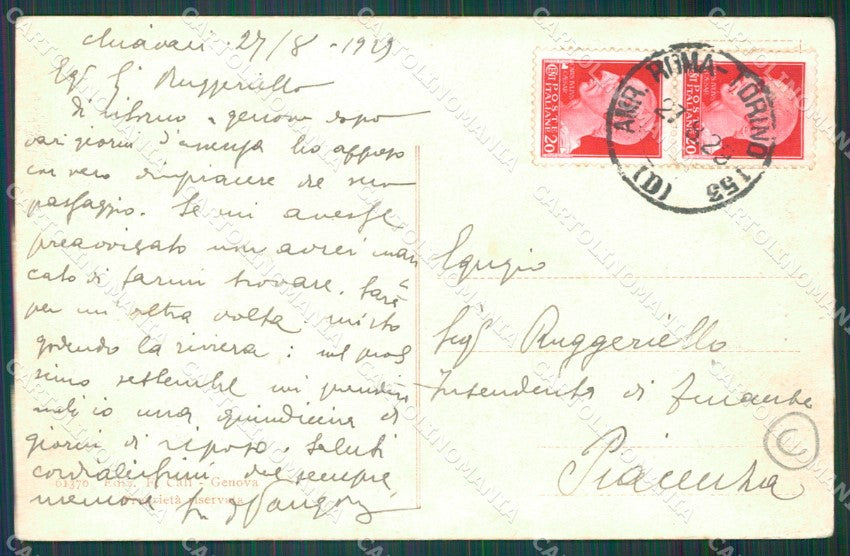 Chiavari 27/8 - 1929
Egr. Sig. Ruggeriello
Di ritorno a Genova dopo
vari giorni d'assenza ho appreso
con vero dispiacere del suo
passaggio. Se mi avesse
preavvisato non avrei man
cato di farmi trovare. Sarà
per un'altra volta
godendo la riviera: nel pros
simo settembre mi prenderò
anch'io una quindicina di
giorni di riposo. Saluti
cordialissimi dal sempre
memore
61370 Fot. F. Calì - Genova
Proprietà riservata
POSTE ITALIANE 20
POSTE ITALIANE 20
AMB. ROMA-TORINO 153
27. 8. 29
(D)
Egregio
Sigr Ruggeriello
Intendente di Finanza
Piacenza
CARTOLINOMANIA